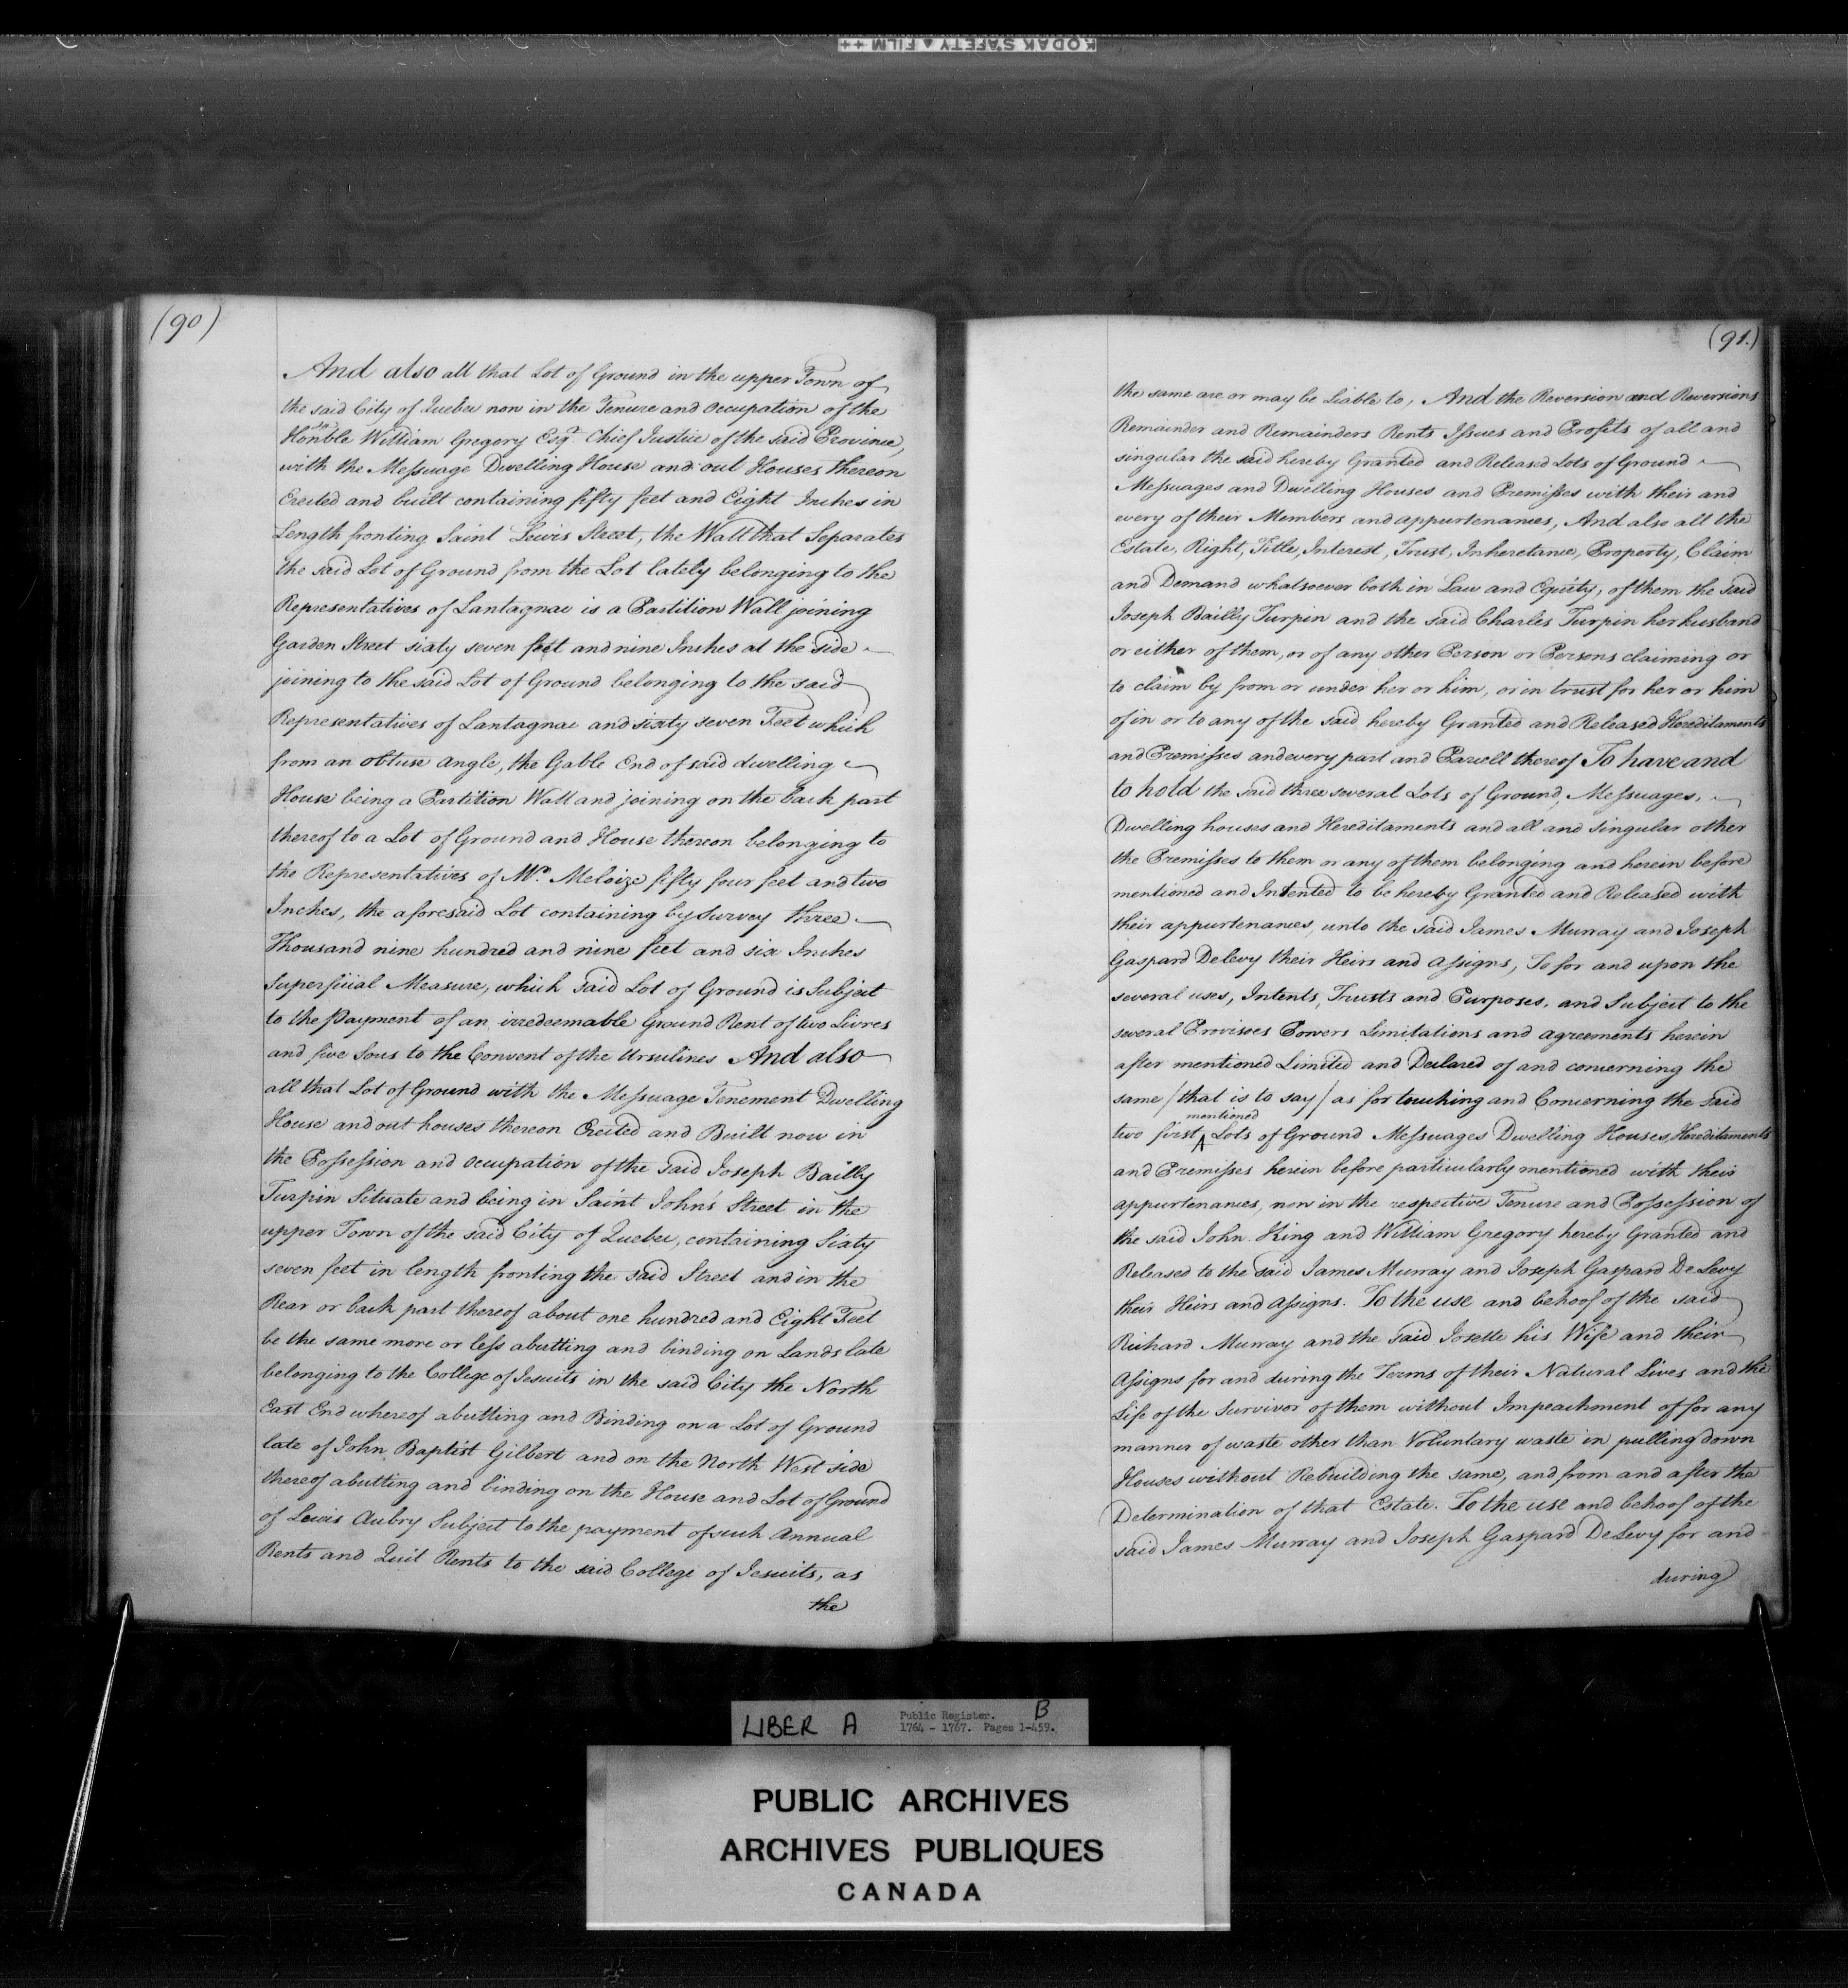 KODAK SAFETY ▲ FILM ++
(90)
And also all that Lot of Ground in the upper Town of
the said City of Quebec now in the Tenure and occupation of the
Honble William Gregory Esqr. Chief Justice of the said Province,
with the Messuage Dwelling House and out Houses thereon
Erected and built containing fifty feet and Eight Inches in
Length fronting Saint Lewis Street, the Wall that Separates
the said Lot of Ground from the Lot lately belonging to the
Representatives of Lantagnac is a Partition Wall joining
Garden Street sixty seven feet and nine Inches at the side
joining to the said Lot of Ground belonging to the said
Representatives of Lantagnac and sixty seven Feet which
from an obtuse angle, the Gable End of said dwelling
House being a Partition Wall and joining on the back part
thereof to a Lot of Ground and House thereon belonging to
the Representatives of Mr. Meloize fifty four feet and two
Inches, the aforesaid Lot containing by Survey three
Thousand nine hundred and nine feet and six Inches
Superficial Measure, which said Lot of Ground is Subject
to the Payment of an irredeemable Ground Rent of two Livres
and five Sous to the Convent of the Ursulines And also
all that Lot of Ground with the Messuage Tenement Dwelling
House and out houses thereon Erected and Built now in
the Possession and occupation of the said Joseph Bailly
Turpin Situate and being in Saint John's Street in the
upper Town of the said City of Quebec, containing Sixty
seven feet in length fronting the said Street and in the
Rear or back part thereof about one hundred and Eight Feet
be the same more or less abutting and binding on Lands late
belonging to the College of Jesuits in the said City the North
East End whereof abutting and Binding on a Lot of Ground
late of John Baptist Gilbert and on the North West side
thereof abutting and binding on the House and Lot of Ground
of Lewis Aubry Subject to the payment of such Annual
Rents and Quit Rents to the said College of Jesuits, as
the
(91.)
the same are or may be Liable to, And the Reversion and Reversions
Remainder and Remainders Rents Issues and Profits of all and
singular the said hereby Granted and Released Lots of Ground
Messuages and Dwelling Houses and Premisses with their and
every of their Members and appurtenances, And also all the
Estate, Right, Title, Interest, Trust, Inheretance, Property, Claim
and Demand whatsoever both in Law and Equity, of them the said
Joseph Bailly Turpin and the said Charles Turpin her husband
or either of them, or of any other Person or Persons claiming or
to claim by from or under her or him, or in trust for her or him
of in or to any of the said hereby Granted and Released Hereditaments
and Premisses and every part and Parcell thereof To have and
to hold the said three several Lots of Ground, Messuages,
Dwelling houses and Hereditaments and all and Singular other
the Premisses to them or any of them belonging and herein before
mentioned and Intented to be hereby Granted and Released with
their appurtenances, unto the said James Murray and Joseph
Gaspard Delevy their Heirs and Assigns, To for and upon the
several uses, Intents, Trusts and Purposes, and Subject to the
several Provisoes Powers Limitations and agreements herein
after mentioned Limited and Declared of and concerning the
same / that is to say / as for touching and Concerning the said
two first mentioned Lots of Ground Messuages Dwelling Houses Hereditaments
and Premisses herein before particularly mentioned with their
appurtenances, now in the respective Tenure and Possession of
the said John King and William Gregory hereby Granted and
Released to the said James Murray and Joseph Gaspard DeLevy
their Heirs and Assigns. To the use and behoof of the said
Richard Murray and the said Josette his Wife and their
Assigns for and during the Terms of their Natural Lives and the
Life of the Survivor of them without Impeachment of for any
manner of waste other than Voluntary waste in pulling down
Houses without Rebuilding the same, and from and after the
Determination of that Estate. To the use and behoof of the
said James Murray and Joseph Gaspard DeLevy for and
during
LIBER A
Public Register. B
1764 - 1767. Pages 1-459.
PUBLIC ARCHIVES
ARCHIVES PUBLIQUES
CANADA